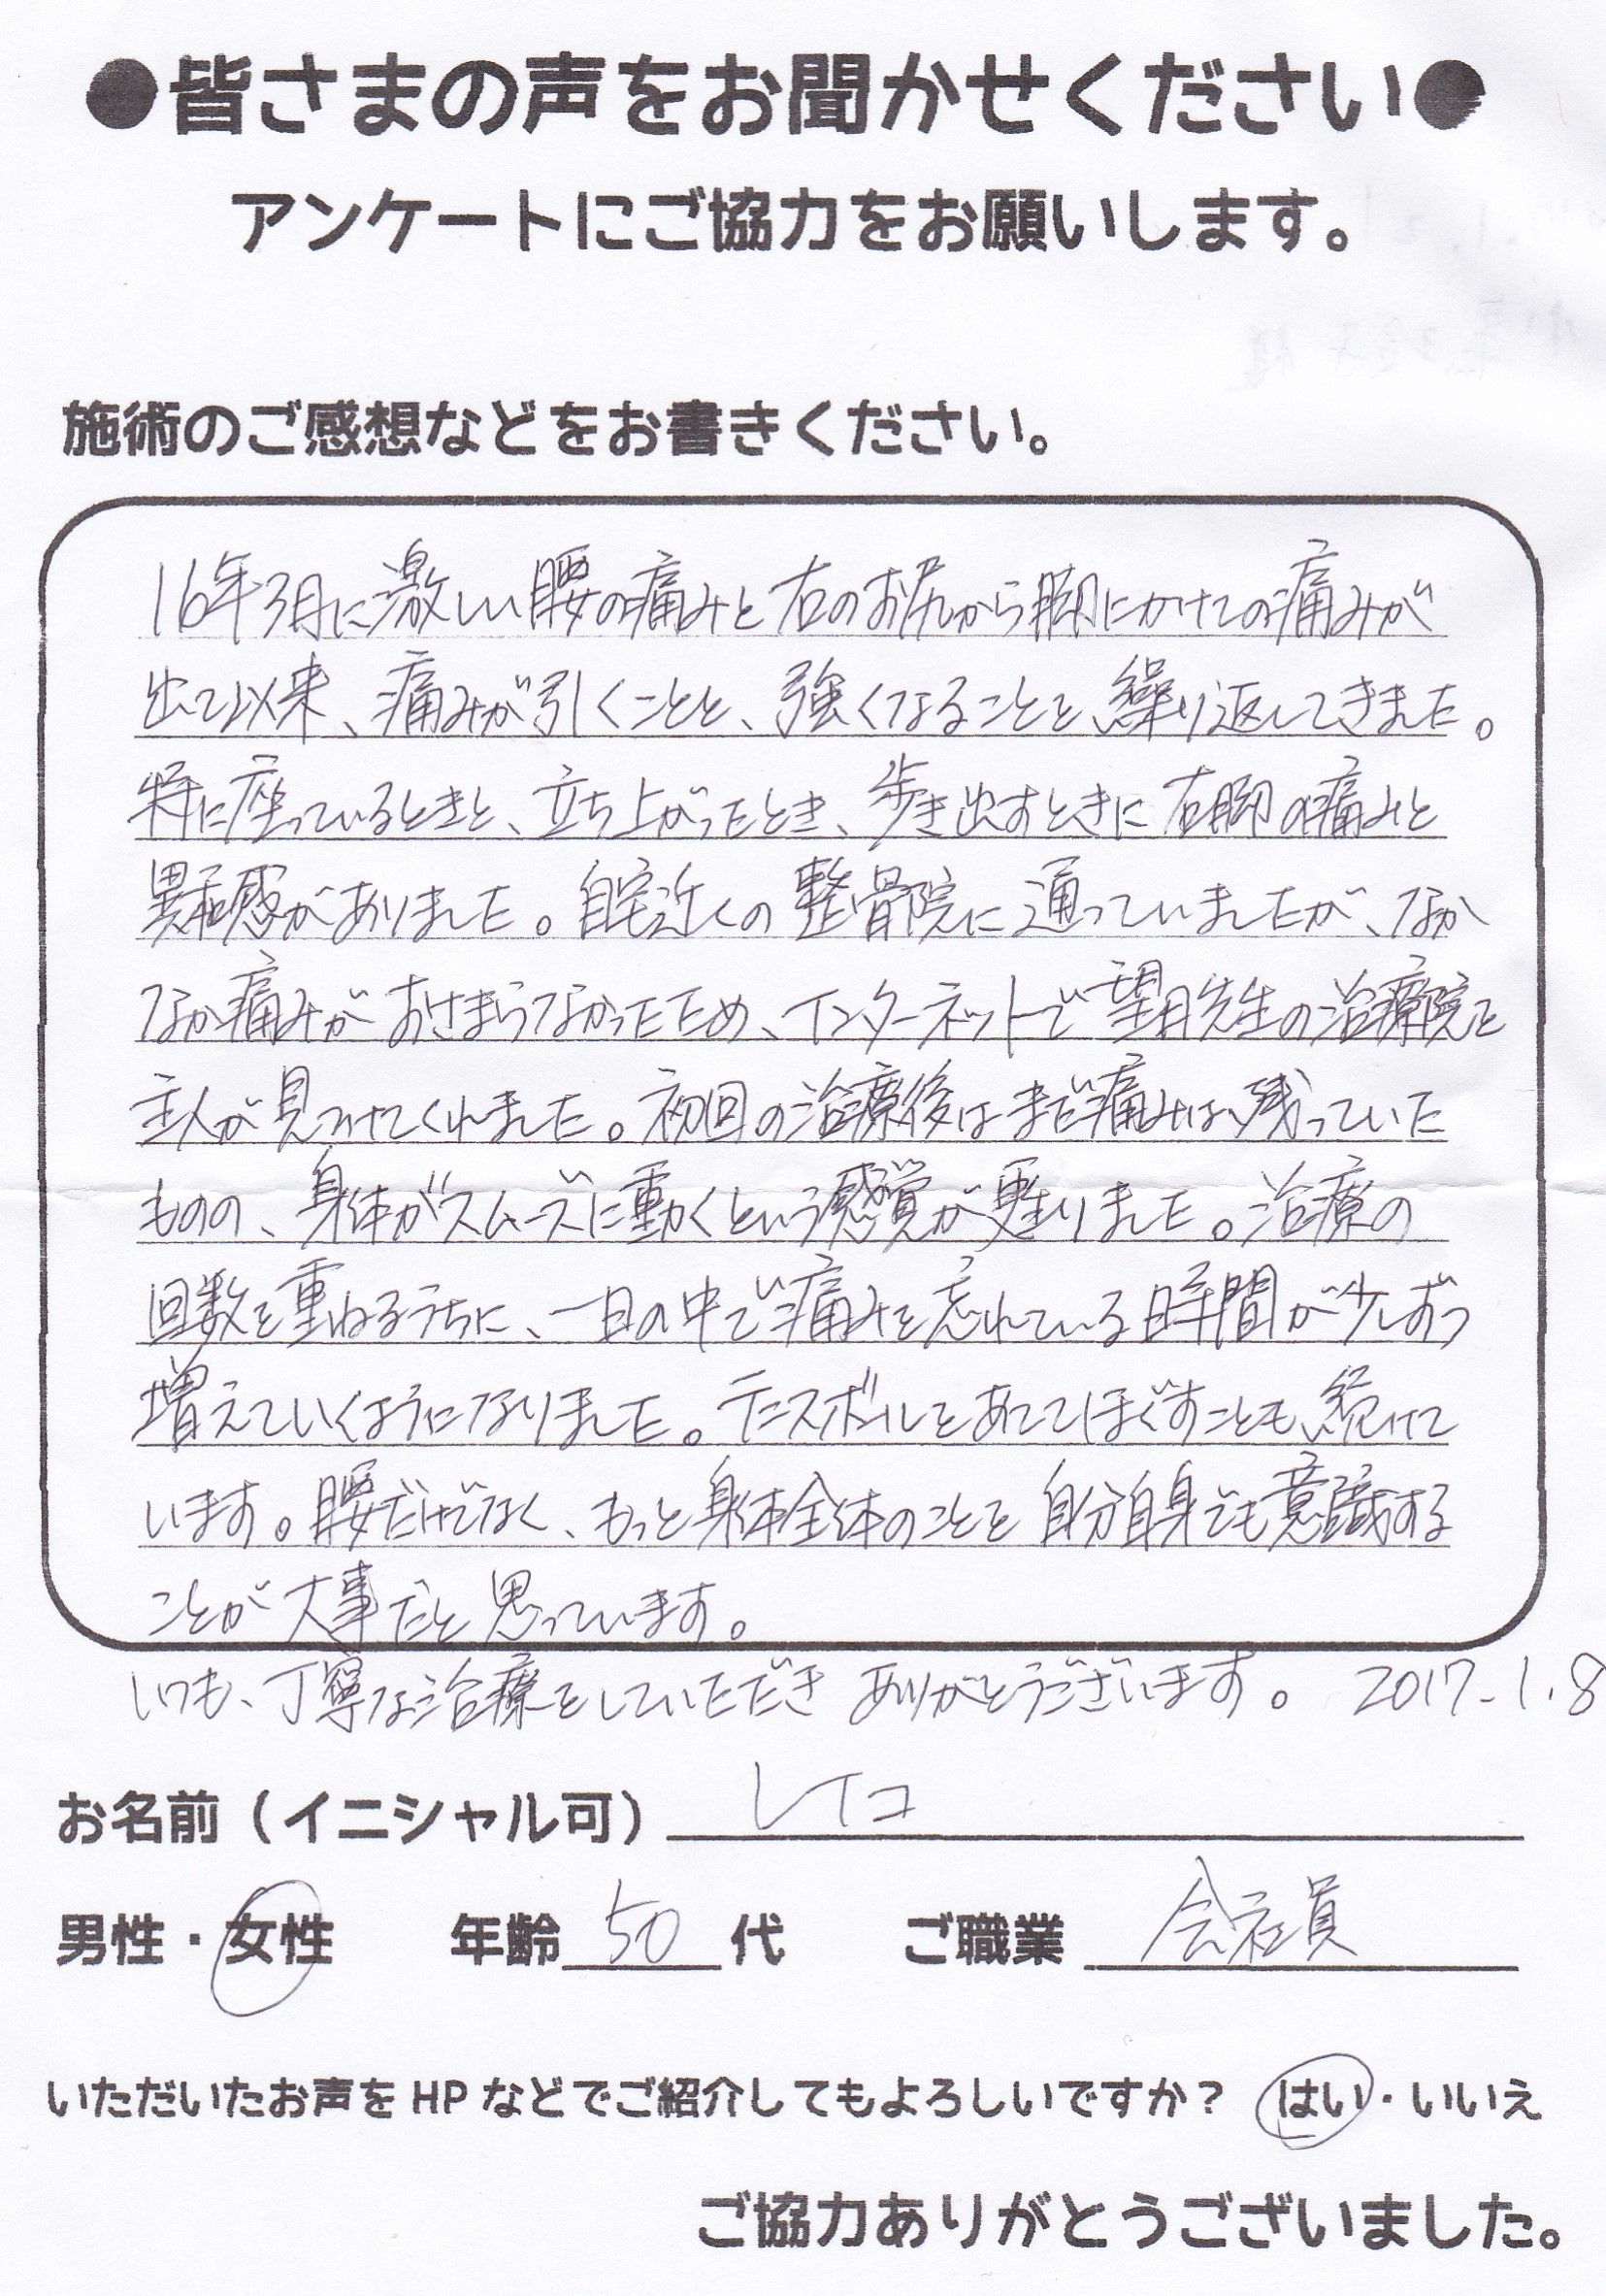 ●皆さまの声をお聞かせください●
アンケートにご協力をお願いします。
施術のご感想などをお書きください。
16年3月に激しい腰の痛みと右のお尻から脚にかけての痛みが
出て以来、痛みが引くことと、強くなることを、繰り返してきました。
特に座っているときと、立ち上がったとき、歩き出すときに右脚の痛みと
異和感がありました。自宅近くの整骨院に通っていましたが、なか
なか痛みがおさまらなかったため、インターネットで望月先生の治療院を
主人が見つけてくれました。初回の治療後はまだ痛みは残っていた
ものの、身体がスムーズに動くという感覚が甦りました。治療の
回数を重ねるうちに、一日の中で痛みを忘れている時間が少しずつ
増えていくようになりました。テニスボールをあててほぐすことも、続けて
います。腰だけでなく、もっと身体全体のことを自分自身でも意識する
ことが大事だと思っています。
いつも、丁寧な治療をしていただきありがとうございます。 2017.1.8
お名前（イニシャル可） レイコ
男性・女性 年齢 50 代 ご職業 会社員
いただいたお声をHPなどでご紹介してもよろしいですか？ はい・いいえ
ご協力ありがとうございました。